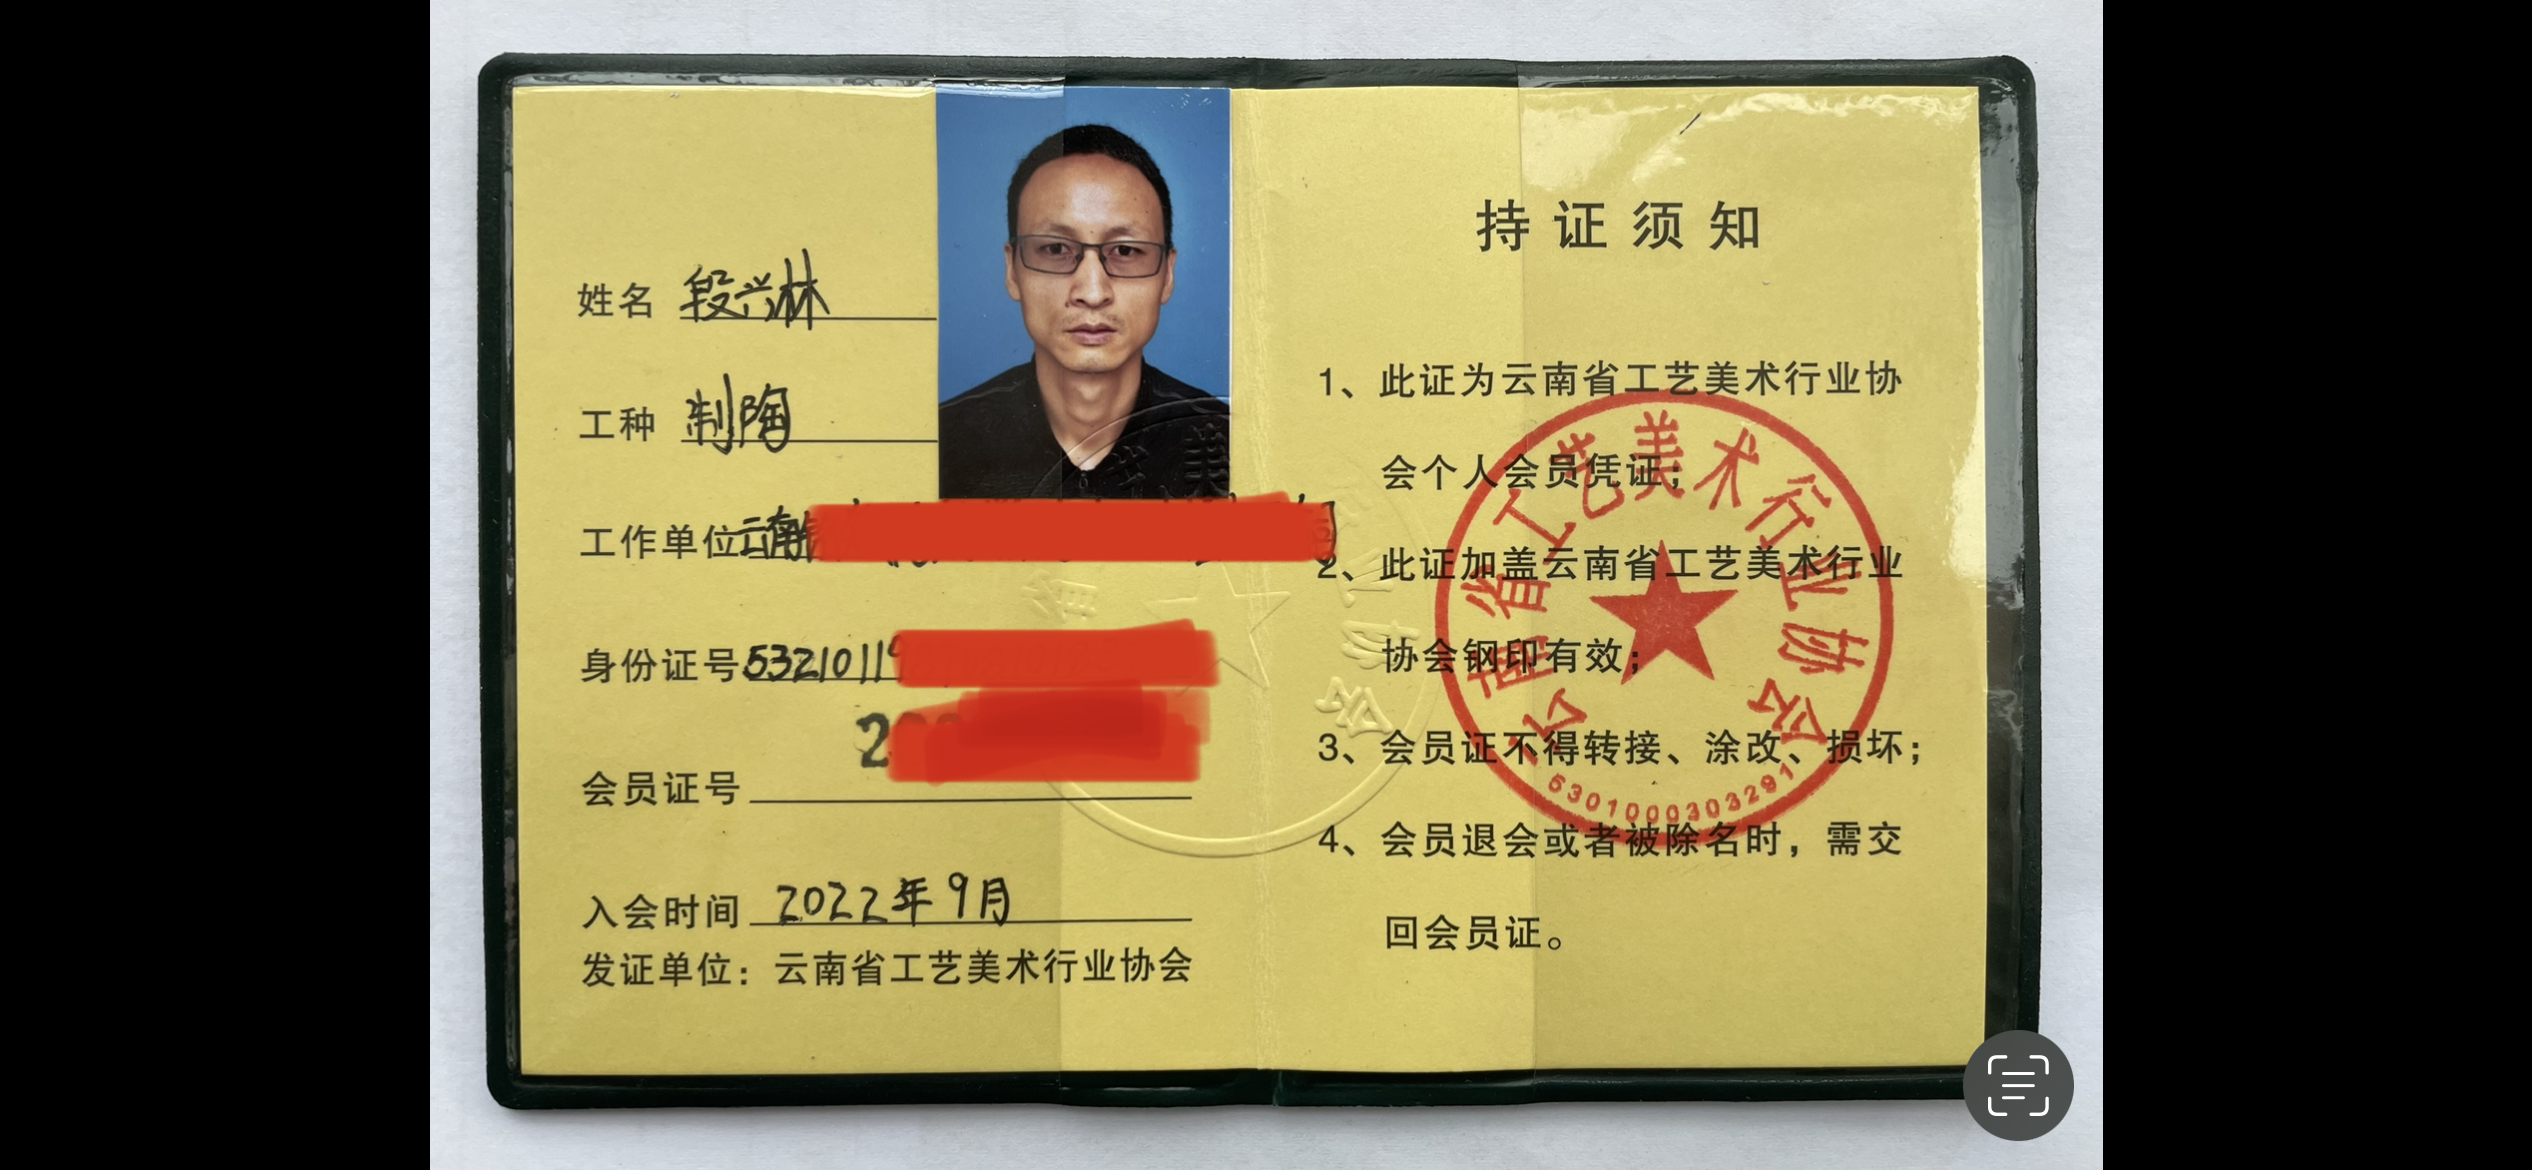 姓名 段兴林
工种 制陶
工作单位 云南
身份证号 53210119
2
会员证号
入会时间 2022年9月
发证单位：云南省工艺美术行业协会
持证须知
1、此证为云南省工艺美术行业协
会个人会员凭证；
2、此证加盖云南省工艺美术行业
协会钢印有效；
3、会员证不得转接、涂改、损坏；
4、会员退会或者被除名时，需交
回会员证。
云南省工艺美术行业协会
5301000303291